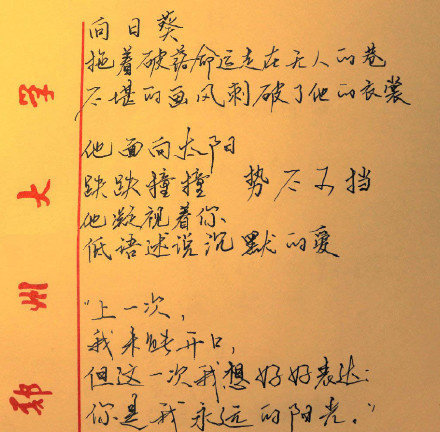 向日葵
拖着破落命运走在无人的巷
不堪的画风刺破了他的衣裳
他面向太阳
跌跌撞撞 势不可挡
他凝视着你
低语述说沉默的爱
"上一次,
我未能开口,
但这一次我想好好表达:
你是我永远的阳光。"
郑州大学